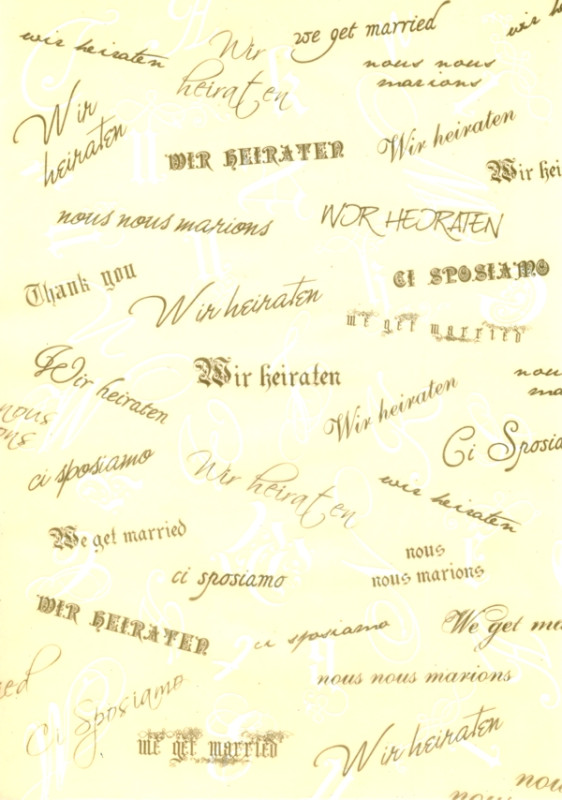 wir heiraten
Wir
heiraten
we get married
wir h
nous nous
marions
Wir
heiraten
WIR HEIRATEN
Wir heiraten
Wir hei
nous nous marions
WIR HEIRATEN
Thank you
Wir heiraten
CI SPOSIAMO
we get married
Wir heiraten
Wir heiraten
Wir heiraten
nou
ma
nous
ons
ci sposiamo
Wir heiraten
Ci Sposia
wir heiraten
We get married
ci sposiamo
nous
nous marions
WIR HEIRATEN
ci sposiamo
We get ma
nous nous marions
ied
Ci Sposiamo
we get married
Wir heiraten
nou
nous